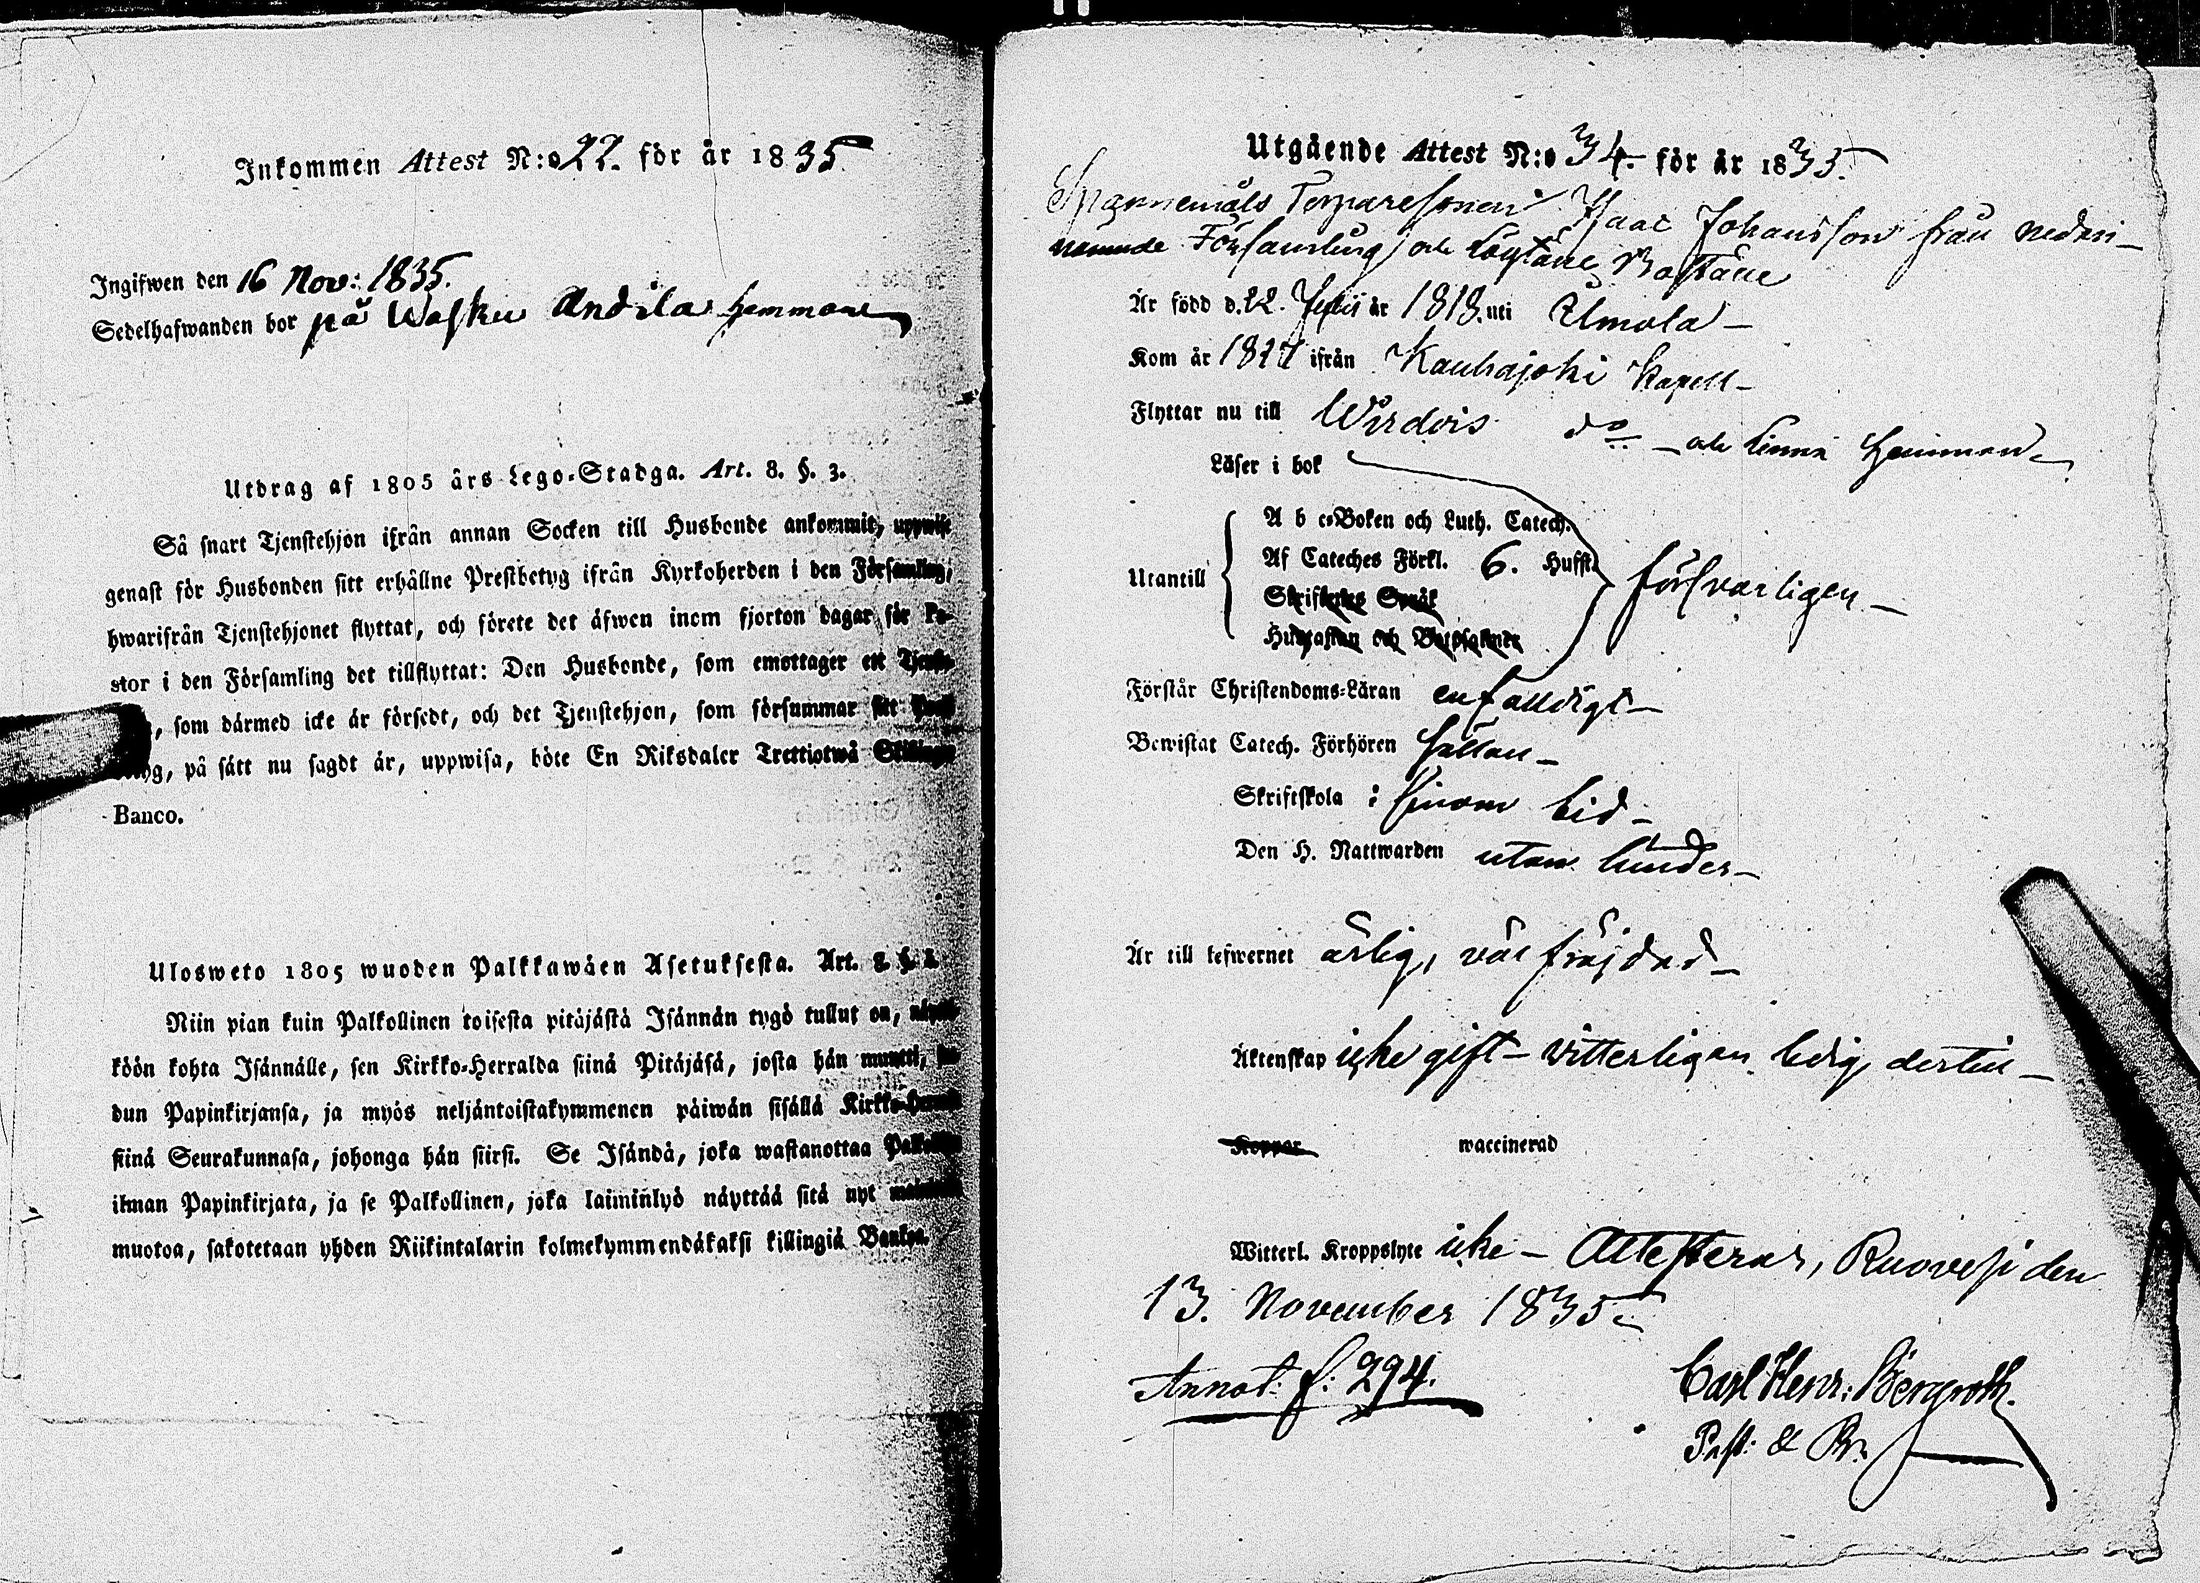 Inkommen Attest N:o 22. för år 1835.
Ingifwen den 16 Nov: 1835.
Sedelhafwanden bor på Wasku Andila hemmane
Utdrag af 1805 års Lego-Stadga. Art. 8. §. 3.
Så snart Tjenstehjon ifrån annan Socken till Husbonde ankommit, uppwise
genast för Husbonden sitt erhållne Prestbetyg ifrån Kyrkoherden i den Församling,
hwarifrån Tjenstehjonet flyttat, och förete det äfwen inom fjorton dagar för Pa-
stor i den Församling det tillflyttat: Den Husbonde, som emottager ett Tjenste-
, som därmed icke är försedt, och det Tjenstehjon, som försummar sitt
, på sätt nu sagdt är, uppwisa, böte En Riksdaler Trettiotwå Skillingar
Banco.
Ulosweto 1805 wuoden Palkkawäen Asetuksesta. Art. 8. §. 3.
Niin pian kuin Palkollinen toisesta pitäjästä Isännän tygö tullut on, näyttä-
köön kohta Isännälle, sen Kirkko-Herralda siinä Pitäjäsä, josta hän muutti,
dun Papinkirjansa, ja myös neljäntoistakymmenen päiwän sisällä Kirkko-Herralle
siinä Seurakunnasa, johonga hän siirsi. Se Isändä, joka wastanottaa Palkollisen
ilman Papinkirjata, ja se Palkollinen, joka laiminlyö näyttää sitä nyt
muotoa, sakotetaan yhden Riikintalarin kolmekymmendäkaksi killingiä Bankoa.
Utgående Attest N:o 34. för år 1835.
Torparesonen Isaac Johansson från nedan-
nämnde Församling och
Är född d. 22. år 1818. uti Ilmola
Kom år 1827 ifrån Kauhajoki Kapell
Flyttar nu till Wirdois do och Linna Hemman
Läser i bok
Utantill
A b c-Boken och Luth. Catech.
Af Cateches Förkl. 6. Hufst. försvarligen
Skriftenes Språk
Hustaflan och Botpsalmer
Förstår Christendoms-Läran enfalldigt
Bewistat Catech. Förhören sällan
Skriftskola : sinom tid
Den H. Nattwarden utan hinder
Är till lefwernet ärlig, väl fräjdad
Äktenskap icke gift - vitterligen ledig dertill
Koppor waccinerad
Witterl. Kroppslyte icke - Attesterar, Ruovesi den
13. November 1835
Annot: f: 294.
Carl Henr: Bergroth.
Past: &